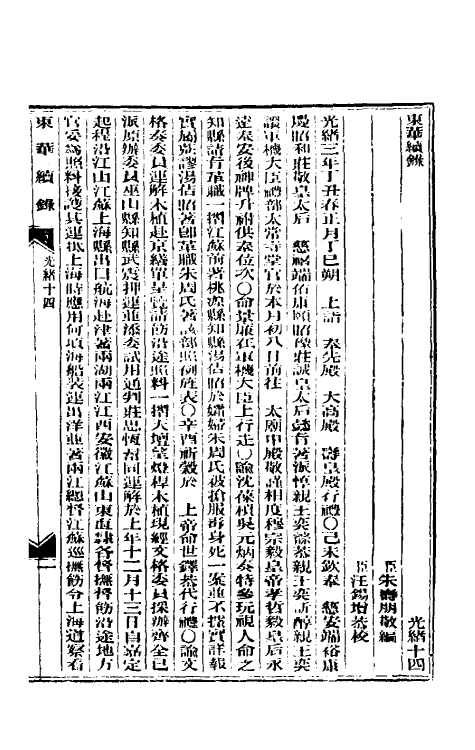 東華續錄
光緒十四
臣朱壽朋敬編
臣汪錫增恭校
光緒三年丁丑春正月丁巳朔　上詣　奉先殿　大高殿　壽皇殿行禮〇己未欽奉　慈安端裕康
慶昭和莊敬皇太后　慈禧端佑康頤昭豫莊誠皇太后懿旨著派惇親王奕誴恭親王奕訢醇親王奕
譞軍機大臣禮部太常寺堂官於本月初八日前往　太廟中殿敬謹相度穆宗毅皇帝孝哲毅皇后永
遠奉安後神牌升祔供奉位次〇命景廉在軍機大臣上行走〇諭沈葆楨吳元炳奏特參玩視人命之
知縣請旨革職一摺江蘇前署桃源縣知縣湯佶昭於孀婦朱周氏被搶服毒身死一案並不據實詳報
實屬荒謬湯佶昭著即革職朱周氏著該部照例旌表〇辛酉祈穀於　上帝命世鐸恭代行禮〇諭文
格奏委員運解木植赴京繕單呈覽請飭沿途照料一摺天壇望燈桿木植現經文格委員採辦齊全已
派原辦委員巫山縣知縣武震押運並添委試用通判莊思恆幫同運解於上年十二月十三日自嘉定
起程沿江山江蘇上海縣出口航海赴津著兩湖兩江江西安徽江蘇山東直隸各督撫飭沿途地方
官妥為照料接護其運抵上海時應用何項海船裝運出洋並著兩江總督江蘇巡撫飭令上海道察看
東華續錄
光緒十四